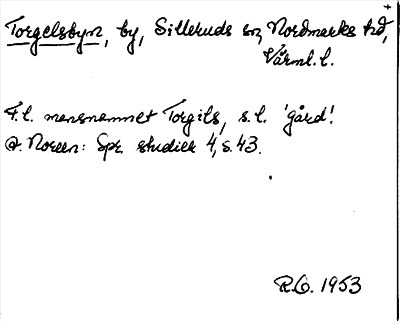 Torgelsbyn, by, Silleruds sn, Nordmarks hd,
Värml. l.
F.l. mansnamnet Torgils, s.l. 'gård'.
A. Noreen: Spr. studier 4, s. 43.
R.O. 1953